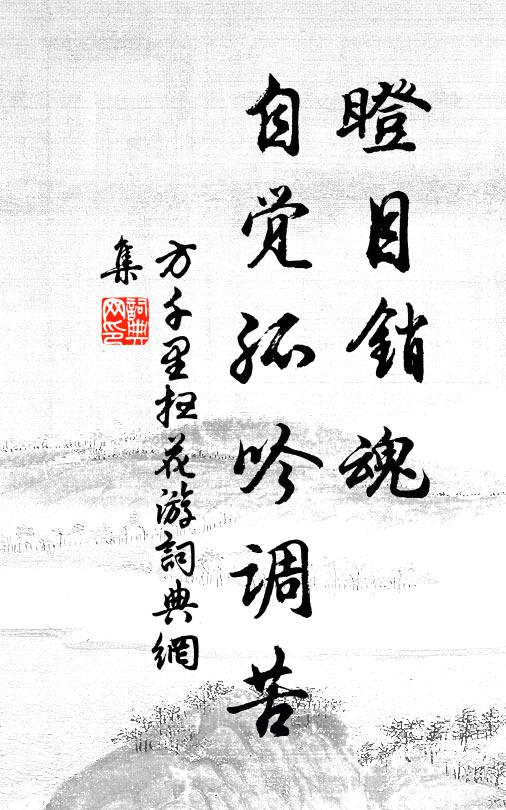 瞪目销魂
自觉孤吟调苦
方千里扫花游詞典網
集
詞典
网印